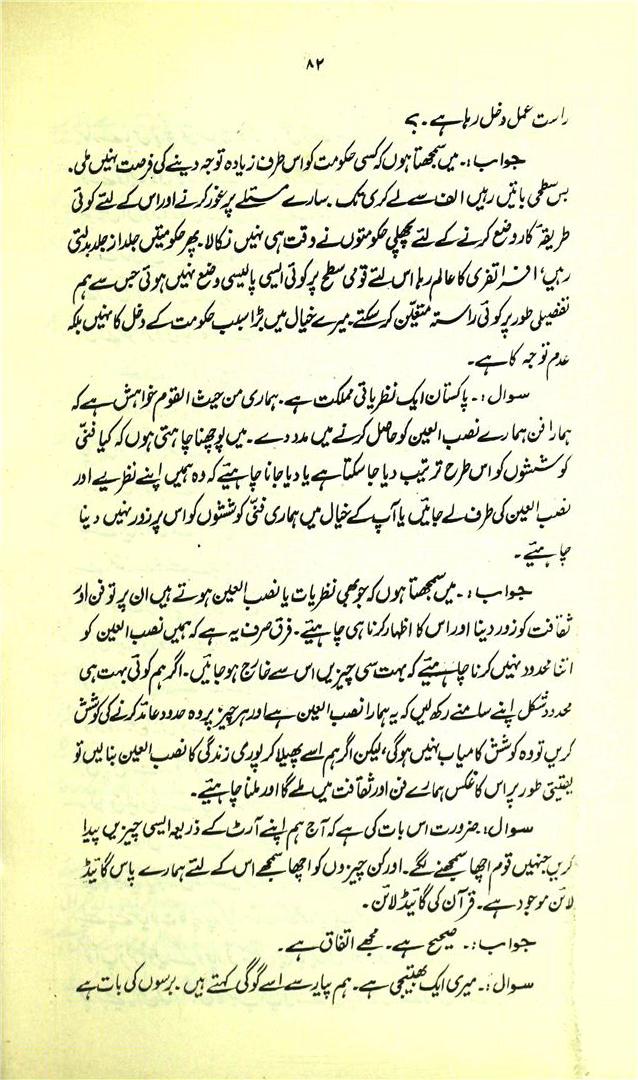 ۸۲
راست عمل دخل رہا ہے ۔ ؟
جواب :۔ میں سمجھتا ہوں کہ کسی حکومت کو اس طرف زیادہ توجہ دینے کی فرصت نہیں ملی ۔
بس سطحی باتیں رہیں الف سے لے کر ی تک ۔ سارے مسئلے پر غور کرنے اور اس کے لئے کوئی
طریقۂ کار وضع کرنے کے لئے پچھلی حکومتوں نے وقت ہی نہیں نکالا ۔ پھر حکومتیں جلد از جلد بدلتی
رہیں ، افراتفری کا عالم رہا اس لئے قومی سطح پر کوئی ایسی پالیسی وضع نہیں ہوئی جس سے ہم
تفصیلی طور پر کوئی راستہ متعین کر سکتے ۔ میرے خیال میں بڑا سبب حکومت کے دخل کا نہیں بلکہ
عدم توجہ کا ہے ۔
سوال :۔ پاکستان ایک نظریاتی مملکت ہے ۔ ہماری من حیث القوم خواہش ہے کہ
ہمارا فن ہمارے نصب العین کو حاصل کرنے میں مدد دے ۔ میں پوچھنا چاہتی ہوں کہ کیا فنّی
کوششوں کو اس طرح ترتیب دیا جا سکتا ہے یا دیا جانا چاہیئے کہ وہ ہمیں اپنے نظریے اور
نصب العین کی طرف لے جائیں یا آپ کے خیال میں ہماری فنّی کوششوں کو اس پر زور نہیں دینا
چاہیئے ۔
جواب :۔ میں سمجھتا ہوں کہ جو بھی نظریات یا نصب العین ہوتے ہیں ان پر تو فن اور
ثقافت کو زور دینا اور اس کا اظہار کرنا ہی چاہیئے ۔ فرق صرف یہ ہے کہ ہمیں نصب العین کو
اتنا محدود نہیں کرنا چاہیئے کہ بہت سی چیزیں اس سے خارج ہو جائیں ۔ اگر ہم کوئی بہت ہی
محدود شکل اپنے سامنے رکھ لیں کہ یہ ہمارا نصب العین ہے اور ہر چیز پر وہ حدود عائد کرنے کی کوشش
کریں تو وہ کوشش کامیاب نہیں ہوگی ، لیکن اگر ہم اسے پھیلا کر پوری زندگی کا نصب العین بنا لیں تو
یقینی طور پر اس کا عکس ہمارے فن اور ثقافت میں ملے گا اور ملنا چاہیئے ۔
سوال :۔ ضرورت اس بات کی ہے کہ آج ہم اپنے آرٹ کے ذریعہ ایسی چیزیں پیدا
کریں جنہیں قوم اچھا سمجھنے لگے ۔ اور کن چیزوں کو اچھا سمجھے اس کے لئے ہمارے پاس گائیڈ
لائن موجود ہے ۔ قرآن کی گائیڈ لائن ۔
جواب :۔ صحیح ہے ۔ مجھے اتفاق ہے ۔
سوال :۔ میری ایک بھتیجی ہے ۔ ہم پیار سے اسے گوگی کہتے ہیں ۔ برسوں کی بات ہے